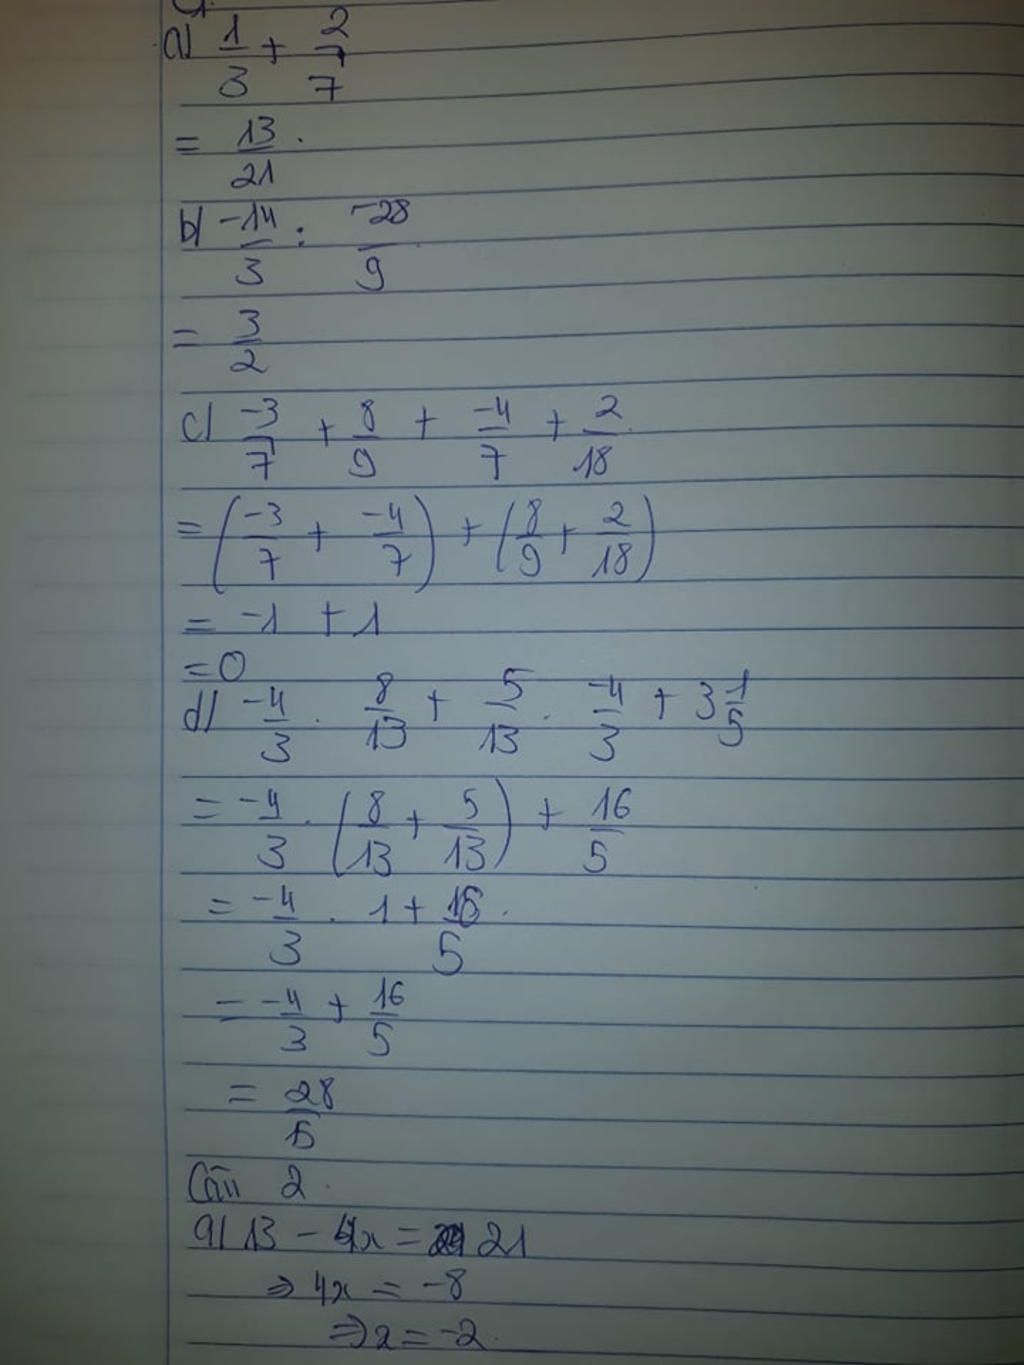 a) 1/3 + 2/7
= 13/21.
b) -14/3 : -28/9
= 3/2
c) -3/7 + 8/9 + -4/7 + 2/18
= (-3/7 + -4/7) + (8/9 + 2/18)
= -1 + 1
= 0
d) -4/3 . 8/13 + 5/13 . -4/3 + 3 1/5
= -4/3 . (8/13 + 5/13) + 16/5
= -4/3 . 1 + 16/5.
= -4/3 + 16/5
= 28/15
Câu 2.
a) 13 - 4x = 21
⇒ 4x = -8
⇒ x = -2.